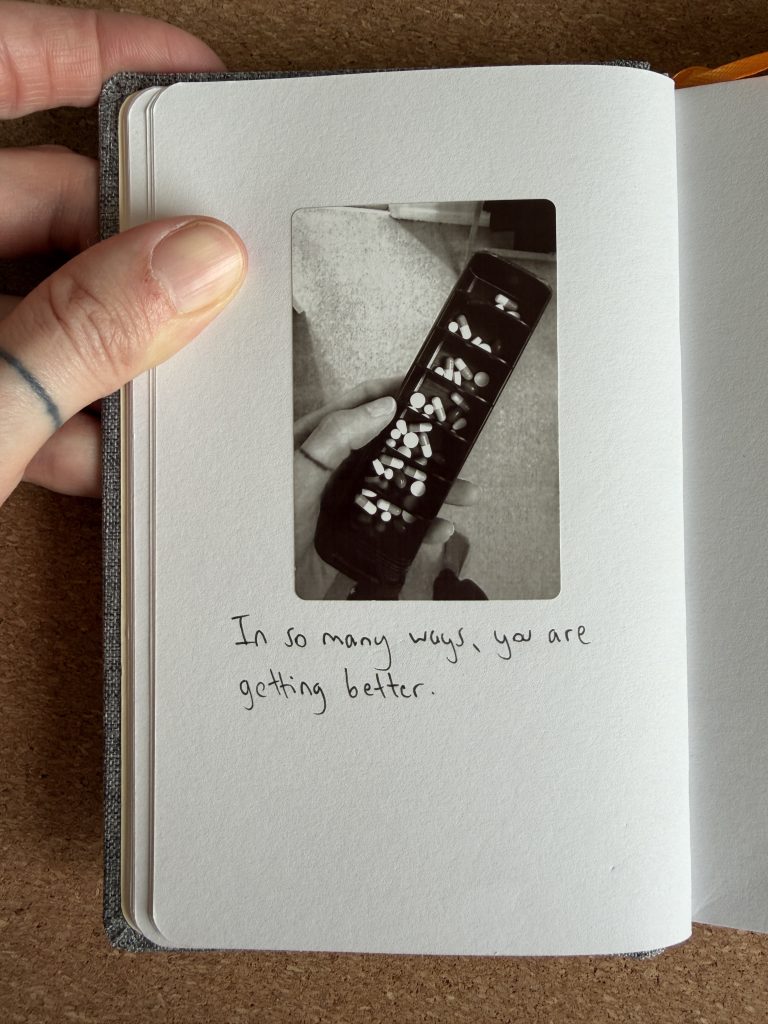 In so many ways, you are
getting better.